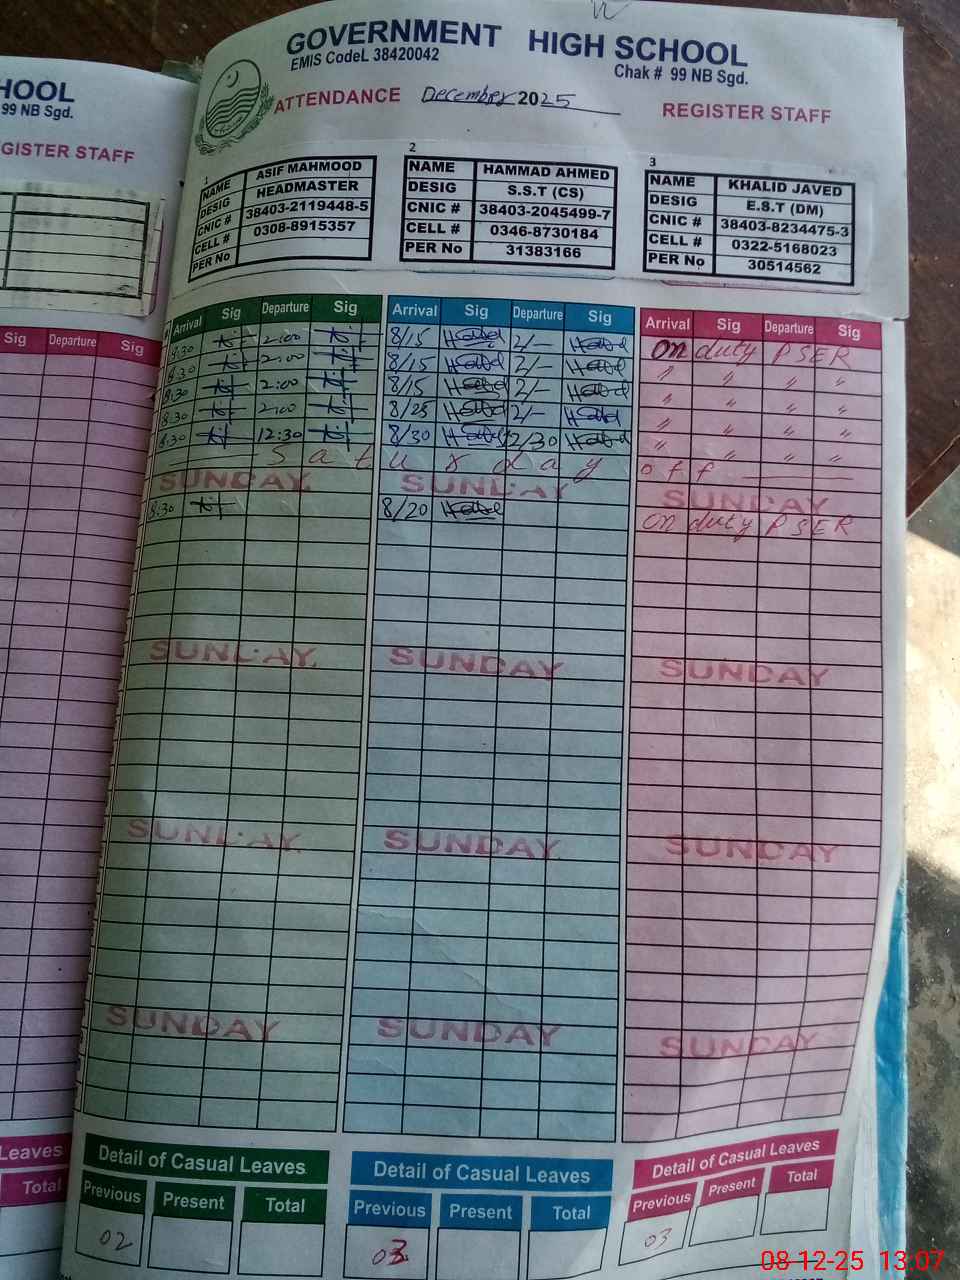 HOOL
99 NB Sgd.
GISTER STAFF
Sig Departure Sig
Leaves
Total
GOVERNMENT HIGH SCHOOL
EMIS CodeL 38420042
Chak # 99 NB Sgd.
ATTENDANCE December 2025 REGISTER STAFF
1
NAME ASIF MAHMOOD
DESIG HEADMASTER
CNIC # 38403-2119448-5
CELL # 0308-8915357
PER No
2
NAME HAMMAD AHMED
DESIG S.S.T (CS)
CNIC # 38403-2045499-7
CELL # 0346-8730184
PER No 31383166
3
NAME KHALID JAVED
DESIG E.S.T (DM)
CNIC # 38403-8234475-3
CELL # 0322-5168023
PER No 30514562
Arrival Sig Departure Sig Arrival Sig Departure Sig Arrival Sig Departure Sig
8:30 2:00 8/15 2/- on duty PSER
8:30 2:00 8/15 2/- " " " "
8:30 2:00 8/15 2/- " " " "
8:30 2:00 8/25 2/- " " " "
8:30 12:30 8/30 12/30 " " " "
Saturday off
SUNDAY SUNDAY SUNDAY
8:30 8/20 on duty PSER
SUNDAY SUNDAY SUNDAY
SUNDAY SUNDAY SUNDAY
SUNDAY SUNDAY SUNDAY
Detail of Casual Leaves Detail of Casual Leaves Detail of Casual Leaves
Previous Present Total Previous Present Total Previous Present Total
02 03 03
08-12-25 13:07